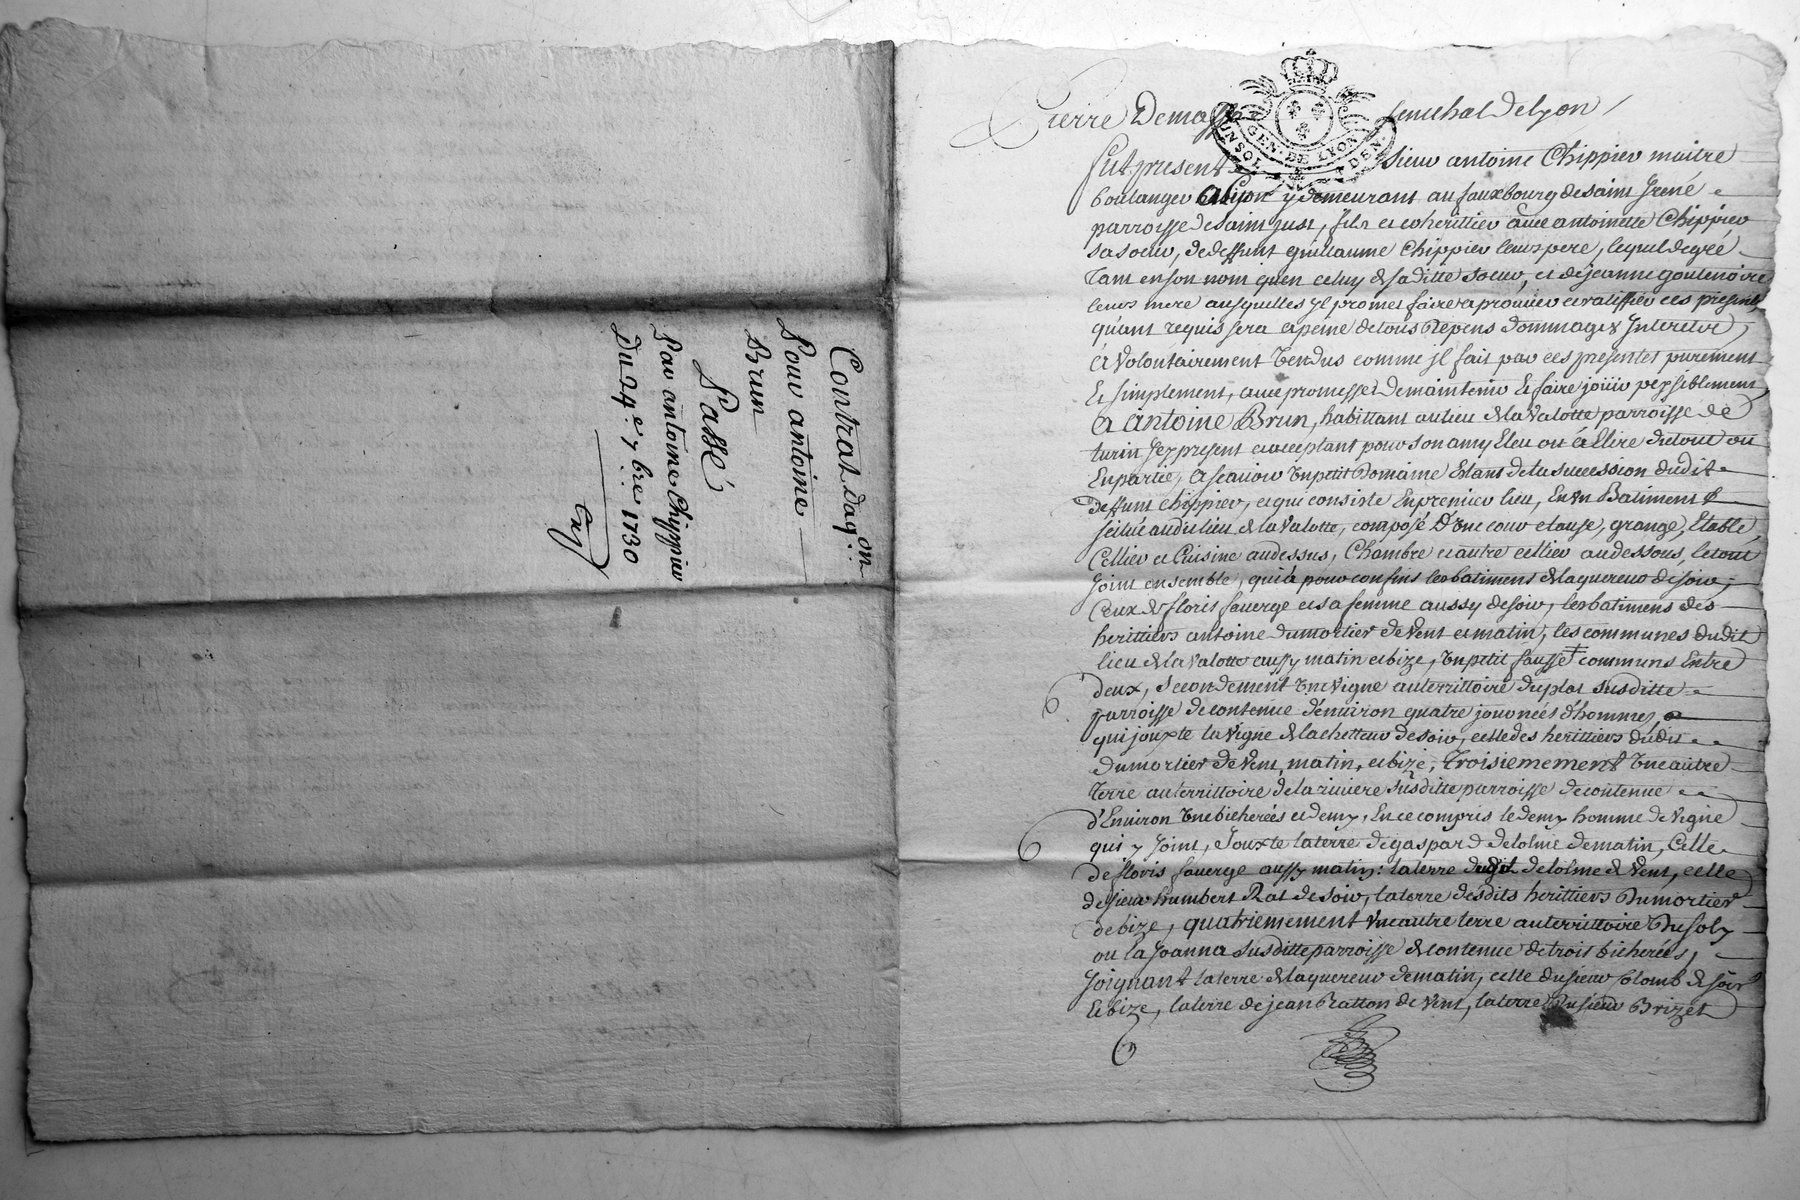 Contrat d'aq.on
Pour antoine
Brun
Passé
Par antoine Chippier
Du 24.e 7bre 1730
Pierre Demass senechal de Lyon
GEN. DE LYON
UN SOL DEN.
Fut present Sieur antoine Chippier maitre
boulanger a Lyon y demeurant au fauxbourg de saint Irené
parroisse de saint Just, fils et coherittier avec antoinette Chippier
sa soeur, de deffunt guillaume Chippier leur pere, lequel de gré
tant en son nom qu'en celuy de sa ditte soeur, et de jeanne goutenoire
leurs mere ausquelles yl promet faire aprouver et ratiffier ces presentes
quant requis sera a peine de tous depens dommages Interetz,
a volontairement vendus comme jl fait par ces presentes purement
et simplement, avec promesse de maintenir et faire joüir pezsiblement
a Antoine Brun, habittant au lieu de la Valotte parroisse de
turin jcy present et acceptant pour son amy Eleu ou à Elire du tout ou
En partie, a scavoir un petit Domaine Estant de la succession dudit
deffunt Chippier, et qui consiste En premier lieu, En un Batiment
scitué audit lieu de la Valotte, composé d'une cour clause, grange, Etable,
Cellier et Cuisine au dessus, Chambre et autre cellier au dessous, le tout
joint ensemble, qui a pour confins les batiments de l'aquereur de soir,
Ceux de floris fauerge et sa femme aussy de soir, les batimens des
herittiers antoine dumortier de vent et matin, les communes dudit
lieu de la valotte aussy matin et bize, un petit fausset communs Entre
deux, secondement une vigne au territtoire du plat susditte
parroisse de contenue d'environ quatre journées d'hommes,
qui jouxte la vigne de lachetteur de soir, celle des herittiers dudit
dumortier de vent, matin, et bize, troisiemement une autre
terre au territtoire de la riviere susditte parroisse de contenue
d'Environ une bicherées et demy, En ce compris le demy homme de vigne
qui y joint, jouxte la terre de gaspard delolme de matin, Celle
de floris fauerge aussy matin: la terre dudit delolme de vent, celle
de sieur humbert Rat de soir, la terre desdits herittiers Dumortier
de bize, quatriemement une autre terre au territtoire Du soly
ou la Joanna susditte parroisse de contenue de trois bicherées,
Joignant la terre de laquereur de matin, celle du sieur Colomb de soir
et bize, la terre de jean Ratton de vent, la terre du sieur Brizet